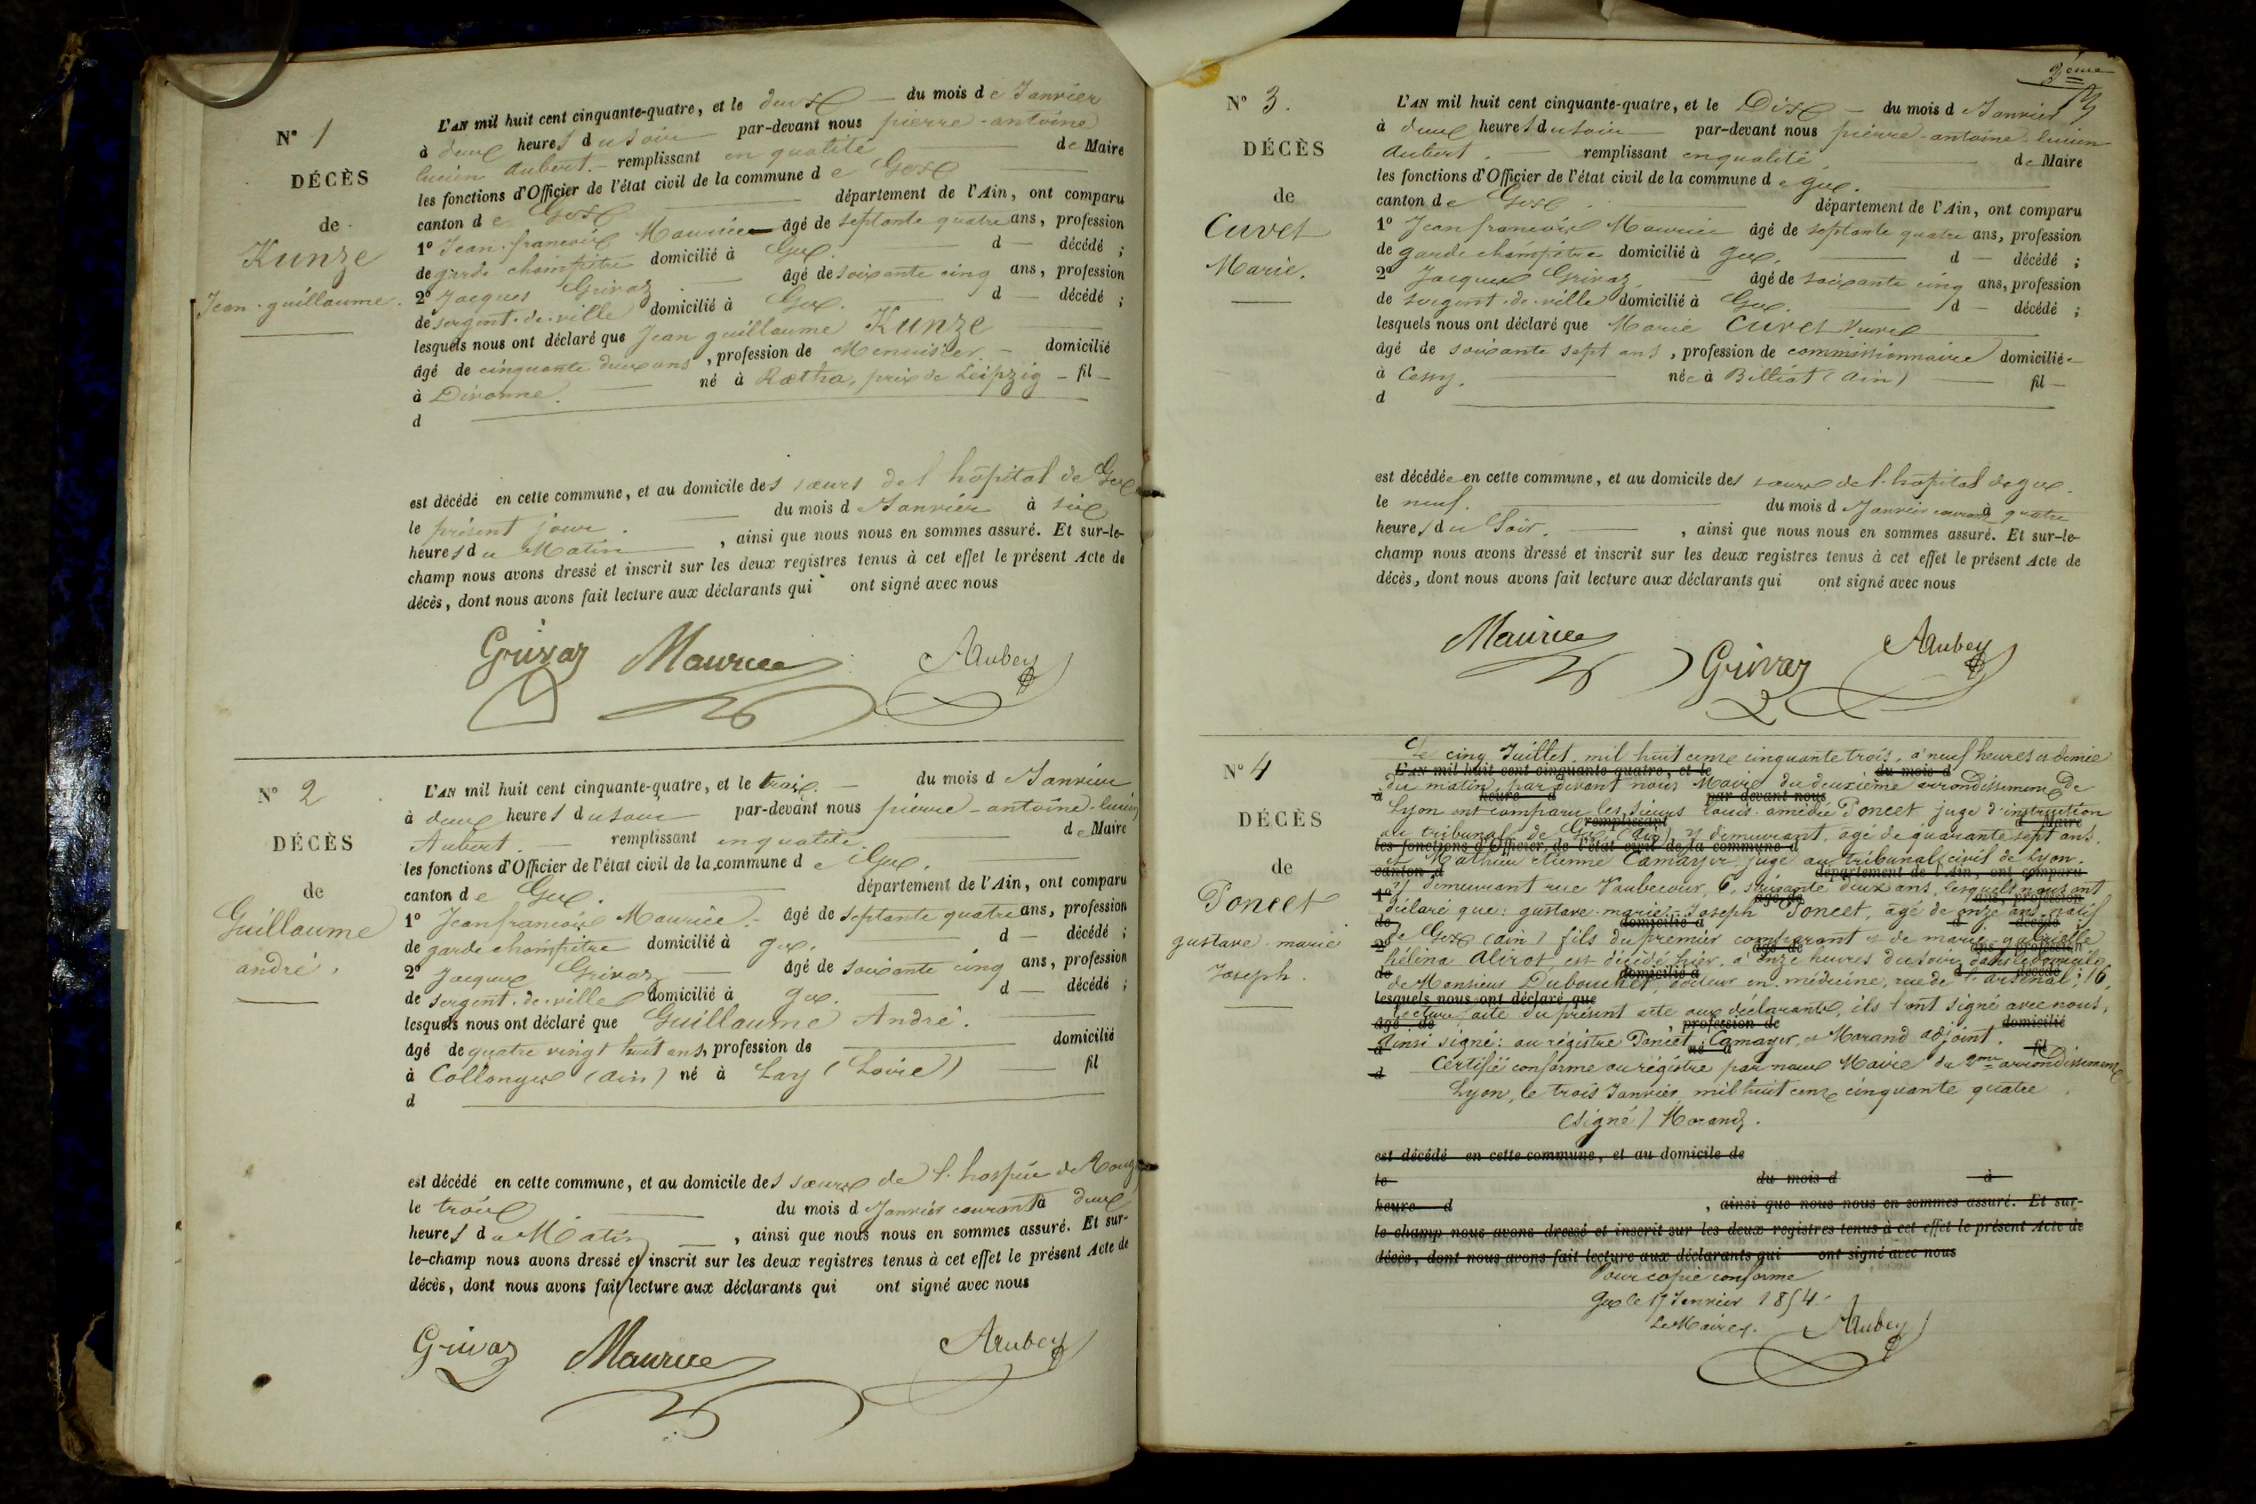 N° 1
DÉCÈS
de
Kunze
Jean-guillaume.
L'AN mil huit cent cinquante-quatre, et le deux — du mois de Janvier
à deux heures du soir par-devant nous pierre-antoine
lucien Aubert. — remplissant en qualité de Maire
les fonctions d'Officier de l'état civil de la commune de Gex
canton de Gex département de l'Ain, ont comparu
1° Jean-françois Maurice âgé de septante quatre ans, profession
de garde champêtre domicilié à Gex. d — décédé ;
2° Jacques Grivaz âgé de soixante cinq ans, profession
de sergent-de-ville domicilié à Gex. d — décédé ;
lesquels nous ont déclaré que Jean guillaume Kunze
âgé de cinquante deux ans, profession de Menuisier — domicilié
à Divonne. né à Rœtha, près de Leipzig — fil —
d
est décédé en cette commune, et au domicile des sœurs de l'hôpital de Gex
le présent jour. du mois d Janvier à six
heures du Matin, ainsi que nous nous en sommes assuré. Et sur-le-
champ nous avons dressé et inscrit sur les deux registres tenus à cet effet le présent Acte de
décès, dont nous avons fait lecture aux déclarants qui ont signé avec nous
Grivaz Maurice
N° 2
DÉCÈS
de
Guillaume
andré.
L'AN mil huit cent cinquante-quatre, et le trois. — du mois d Janvier
à deux heures du soir par-devant nous pierre-antoine-lucien
Aubert. — remplissant en qualité de Maire
les fonctions d'Officier de l'état civil de la commune de Gex.
canton de Gex. département de l'Ain, ont comparu
1° Jean françois Maurice. — âgé de septante quatre ans, profession
de garde champêtre domicilié à gex. d — décédé ;
2° Jacques Grivaz — âgé de soixante cinq ans, profession
de sergent-de-ville domicilié à gex. d — décédé ;
lesquels nous ont déclaré que Guillaume André.
âgé de quatre vingt huit ans, profession de domicilié
à Collonges (Ain) né à Lay (Loire) fil
d
est décédé en cette commune, et au domicile des sœurs de l'hospice de
le trois du mois d Janvier courant à deux
heures du Matin, ainsi que nous nous en sommes assuré. Et sur-
le-champ nous avons dressé et inscrit sur les deux registres tenus à cet effet le présent Acte de
décès, dont nous avons fait lecture aux déclarants qui ont signé avec nous
Grivaz Maurice
3ème
N° 3.
DÉCÈS
de
Cuvet
Marie.
L'AN mil huit cent cinquante-quatre, et le Dix — du mois d Janvier
à deux heures du soir par-devant nous pierre-antoine-lucien
Aubert. — remplissant en qualité de Maire
les fonctions d'Officier de l'état civil de la commune de gex.
canton de Gex. département de l'Ain, ont comparu
1° Jean françois Maurice âgé de septante quatre ans, profession
de garde champêtre domicilié à gex. d — décédé ;
2° Jacques Grivaz. âgé de soixante cinq ans, profession
de sergent-de-ville domicilié à Gex. d — décédé ;
lesquels nous ont déclaré que Marie Cuvet
âgé de soixante sept ans, profession de commissionnaire domiciliée
à Cessy. née à Billiat (Ain) — fil —
d
est décédée en cette commune, et au domicile des sœurs de l'hôpital de gex.
le neuf. du mois d Janvier courant à quatre
heures du Soir. , ainsi que nous nous en sommes assuré. Et sur-le-
champ nous avons dressé et inscrit sur les deux registres tenus à cet effet le présent Acte de
décès, dont nous avons fait lecture aux déclarants qui ont signé avec nous
Maurice Grivaz
N° 4
DÉCÈS
de
Poncet
gustave-marie
Joseph.
Le cinq Juillet mil huit cent cinquante trois, à neuf heures et demie
L'AN mil huit cent cinquante-quatre, et le du mois d
du matin, par devant nous Maire du deuxième arrondissement De
à heure d par-devant nous
Lyon ont comparu les sieurs louis-amédée Poncet juge d'instruction
remplissant d Maire
au tribunal de Gex (Ain) y demeurant, âgé de quarante sept ans,
les fonctions d'Officier de l'état civil de la commune d
et Mathieu etienne Camayer, juge au tribunal civil de Lyon.
canton d département de l'Ain, ont comparu
y demeurant rue Vaubecour, 6, soixante deux ans, lesquels nous ont
1° âgé de ans, profession
déclaré que: gustave-marie-Joseph Poncet, âgé de onze ans, natif
de domicilié à d décédé
de Gex (ain) fils du premier comparant et de marie gabrielle
2° âgé de ans, profession
hélèna Alirot est décédé hier, à onze heures du soir dans le domicile
de domicilié à d décédé ;
de Monsieur Dubouchet, docteur en médecine, rue de l'arsenal, 16,
lesquels nous ont déclaré que
Lecture faite du présent acte aux déclarants, ils l'ont signé avec nous,
âgé de , profession de domicilié
Ainsi signé: au régistre Poncet, Camayer, et Morand adjoint.
à né à fil
Certifié conforme au régistre par nous Maire du 2me arrondissement
d
Lyon, le trois Janvier mil huit cent cinquante quatre
(signé) Morand.
est décédé en cette commune, et au domicile de
le du mois d à
heure d , ainsi que nous nous en sommes assuré. Et sur-
le-champ nous avons dressé et inscrit sur les deux registres tenus à cet effet le présent Acte de
décès, dont nous avons fait lecture aux déclarants qui ont signé avec nous
Pour copie conforme
Gex le 17 Janvier 1854.
Le Maire.